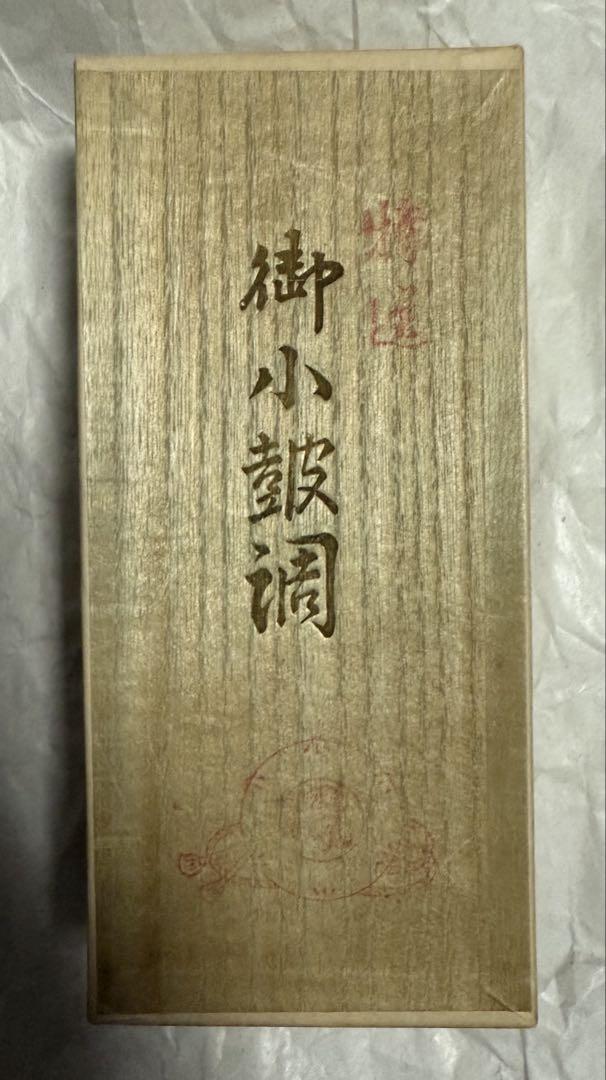 特選
御小鼓調